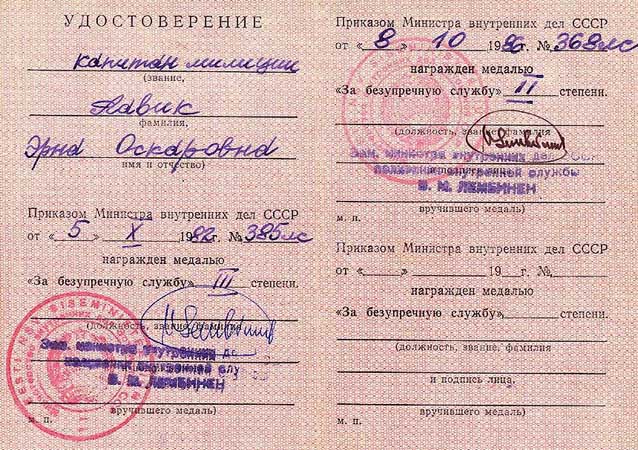 УДОСТОВЕРЕНИЕ
капитан милиции
(звание,
Лавик
фамилия,
Эрна Оскаровна
имя и отчество)
Приказом Министра внутренних дел СССР
от «5» X 1982 г. № 385лс
награжден медалью
«За безупречную службу» III степени.
(должность, звание, фамилия
Зам. министра внутренних дел
полковник внутренней службы
В. М. ЛЕМБИНЕН
вручившего медаль)
м. п.
Приказом Министра внутренних дел СССР
от «8» 10 1986 г. № 368лс
награжден медалью
«За безупречную службу» II степени.
(должность, звание, фамилия
Зам. министра внутренних дел ССР
полковник внутренней службы
В. М. ЛЕМБИНЕН
вручившего медаль)
м. п.
Приказом Министра внутренних дел СССР
от «  »  19  г. №
награжден медалью
«За безупречную службу»  степени.
(должность, звание, фамилия
и подпись лица,
вручившего медаль)
м. п.